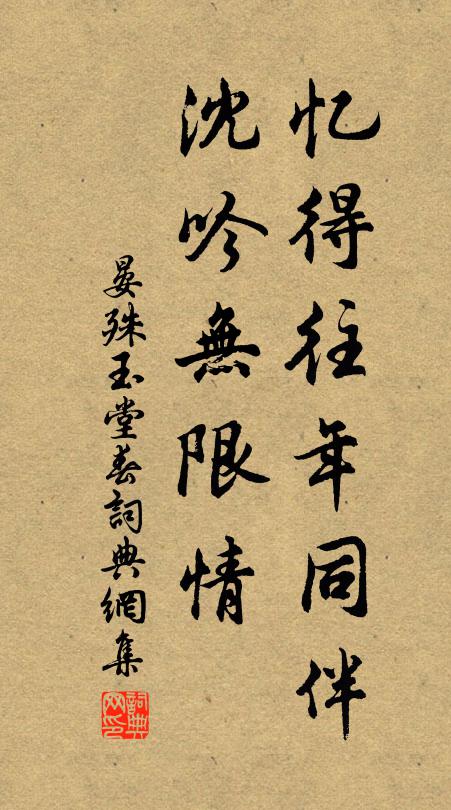 忆得往年同伴
沈吟無限情
晏殊玉堂春詞典網集
詞典网印